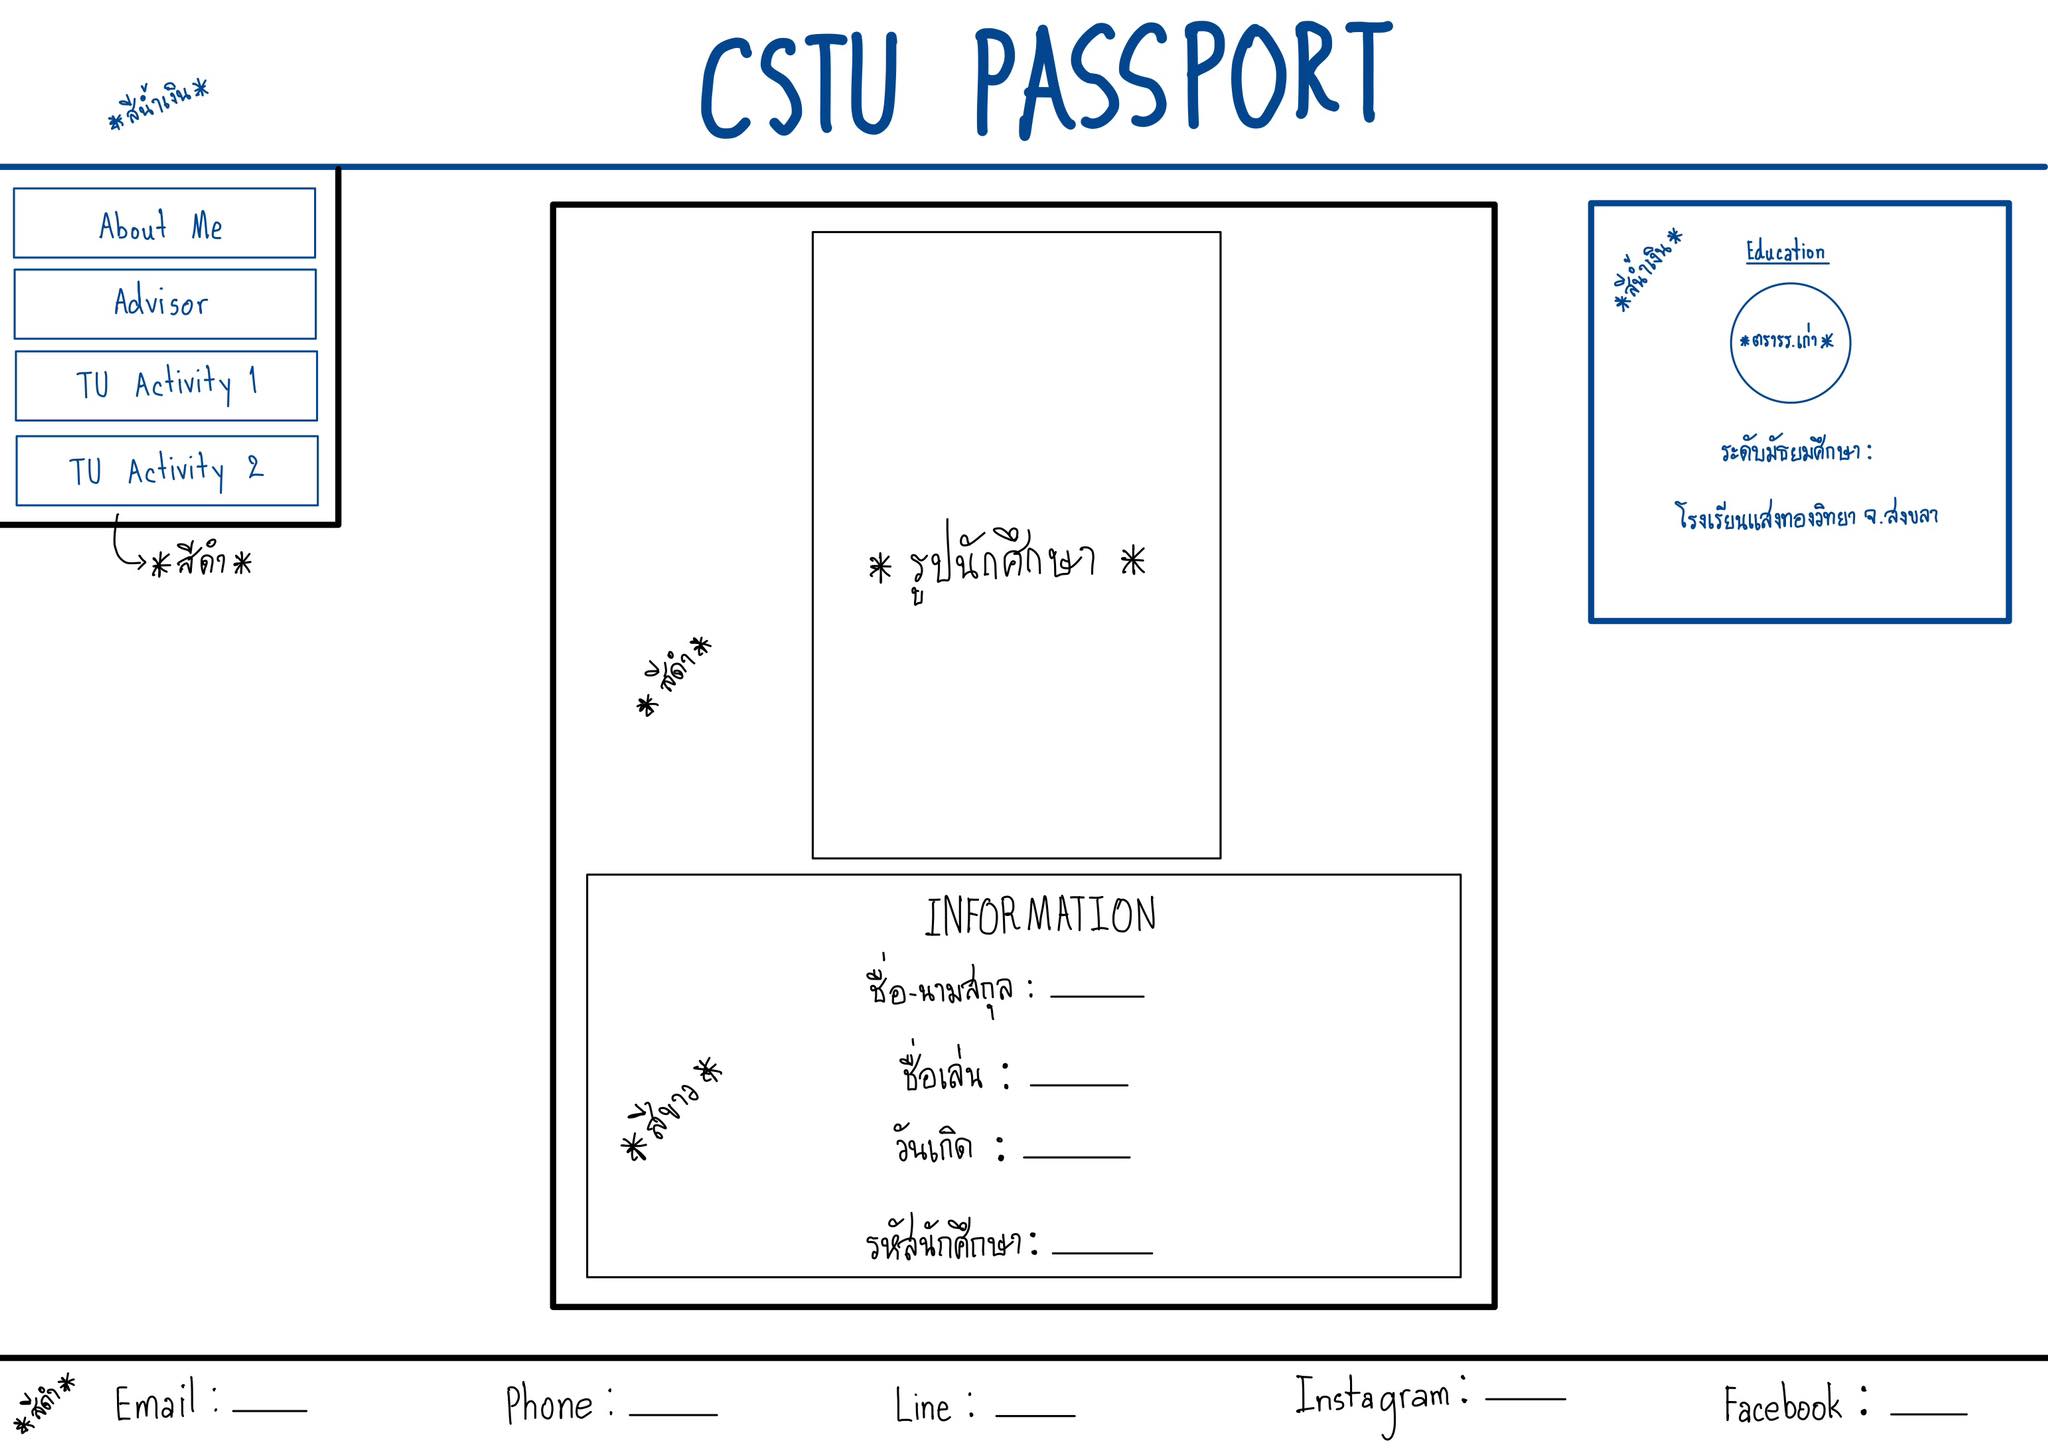 CSTU PASSPORT
*สีน้ำเงิน*
About Me
Advisor
TU Activity 1
TU Activity 2
*สีดำ*
*รูปนักศึกษา*
*สีดำ*
INFORMATION
ชื่อ-นามสกุล :
ชื่อเล่น :
วันเกิด :
รหัสนักศึกษา :
*สีขาว*
*สีน้ำเงิน*
Education
*ตรารร.เก่า*
ระดับมัธยมศึกษา :
โรงเรียนแสงทองวิทยา จ.สงขลา
*สีดำ*
Email :
Phone :
Line :
Instagram :
Facebook :